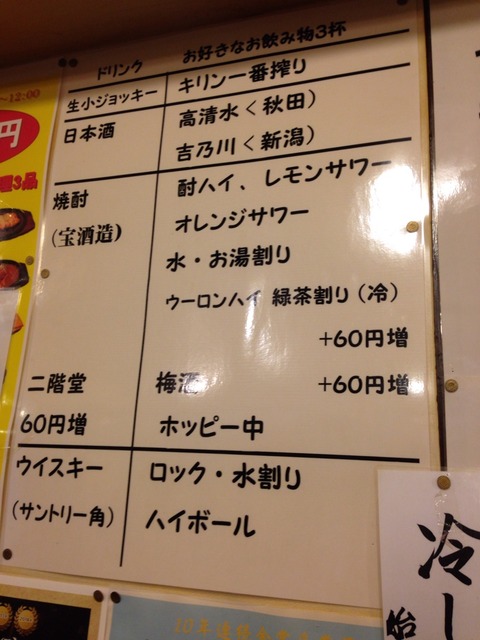 ドリンク お好きなお飲み物3杯
生小ジョッキー キリン一番搾り
日本酒 高清水<秋田)
吉乃川<新潟)
焼酎 酎ハイ、レモンサワー
(宝酒造) オレンジサワー
水・お湯割り
ウーロンハイ 緑茶割り(冷)
+60円増
二階堂 梅酒 +60円増
60円増 ホッピー中
ウイスキー ロック・水割り
(サントリー角) ハイボール
~12:00
円
3品
冷し